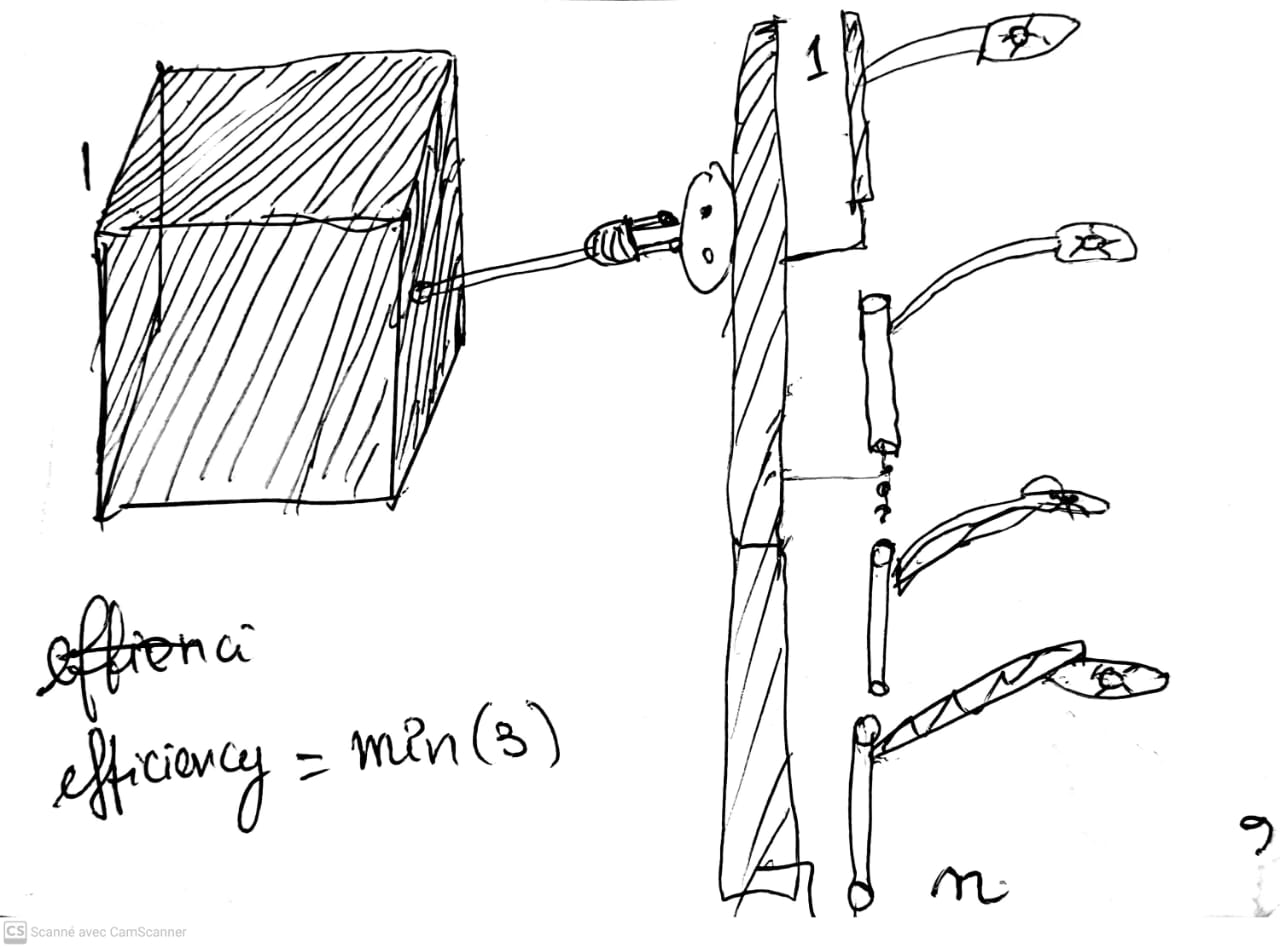 1
1
effienci
efficiency = min(3)
n
CS Scanné avec CamScanner